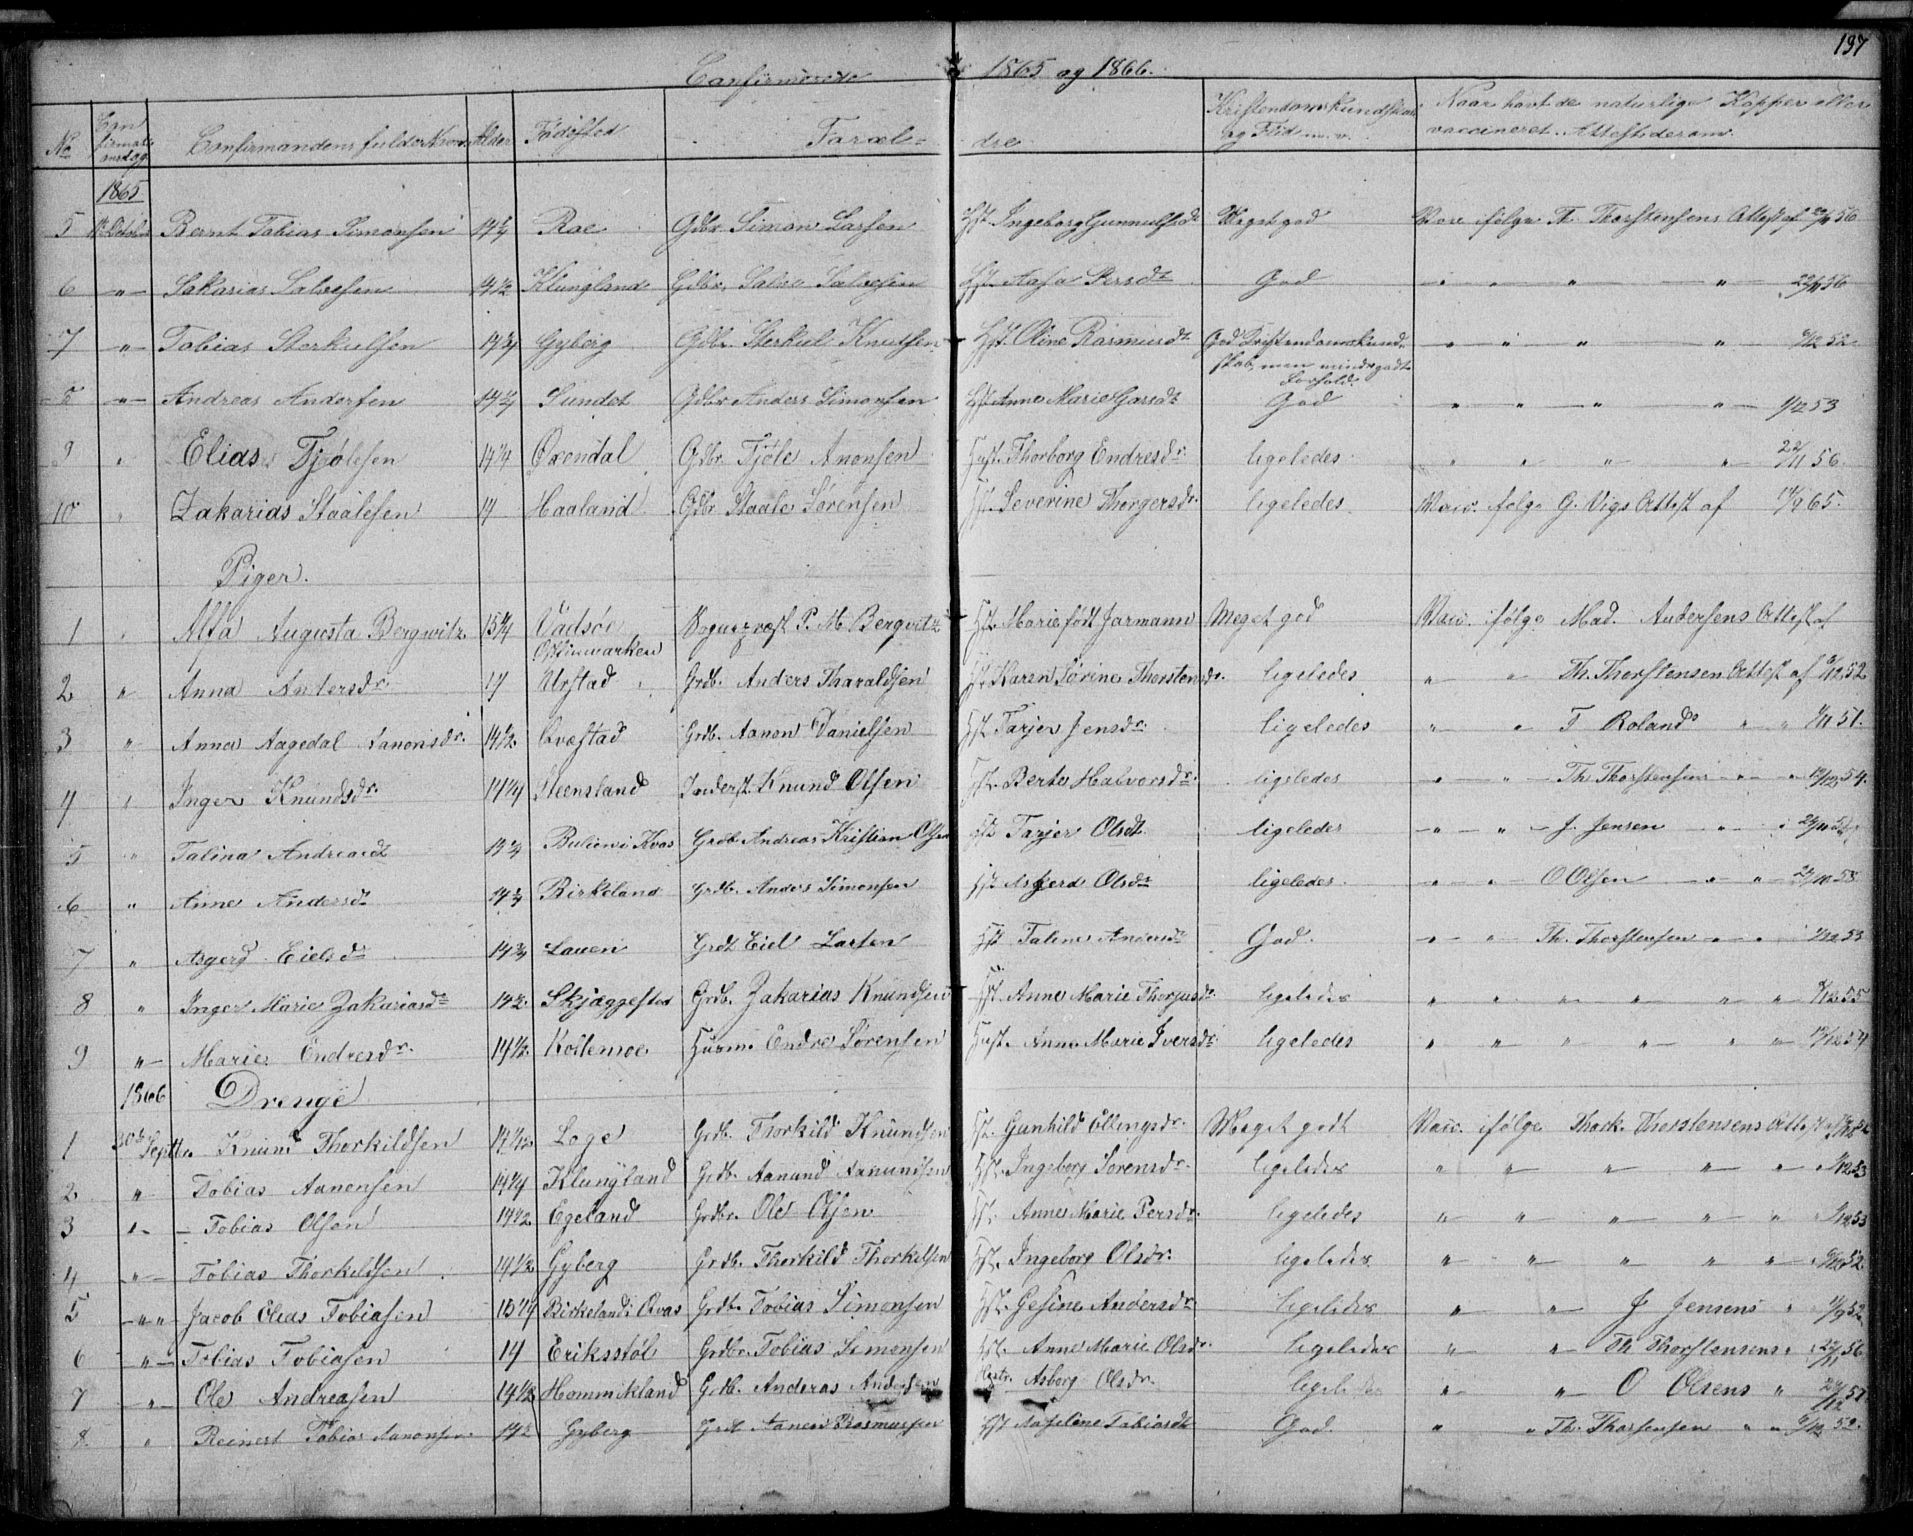 197
Confirmerede 1865 og 1866.
No Confirmandens fulde Navn Alder Fødested Foræl- dre Kristendomskundskab og Flid m. v. Naar havt de naturlige Kopper eller vaccineret. Attest derom.
1865
5 Bernt Tobias Simonsen Roe Gdbr Simon Larsen Hst. Ingeborg Meget god Vacc ifølge T. Thorstensens Attest af 56
6 -"- Sakarias Salvesen 14½ Klungland Gdbr. Salve Salvesen Hst. Aasa Persdt God " " " " 22/11 56
7 -"- Tobias Sterkulsen 14¾ Gyberg Gdbr. Sterkul Knutsen Hst. Oline Rasmusdt God Kristendomskundskab, men mindre godt Forhold. " " " " 52
-"- Andreas Andersen Sundet Gdbr Anders Simonsen Hst Anne Marie God " " " " 53
9 " Elias Fjølesen 14¼ Øxendal Gdbr. Fjøle Anonsen Hust. Thorborg Endresdr. ligeledes " " " " 22/11 56.
10 " Zakarias Staalesen 14 Haaland Gdbr. Staale Sørensen Hst. Severine Thorgersdr. ligeledes Vacc. følge G. Vigs Attest af 14/9 65.
Piger.
1 " Alfa Augusta Bergwitz 15¼ Vadsøe Ostfinmarken Sogneprest P. M. Bergvitz Hst. Marie født Jarmann Meget god Vacc. ifølge Mad. Andersens Attest af
2 " Anna Andersdr. 14 Urstad Grdb. Anders Tharaldsen Hst Karen Sørine Thorstensdr. ligeledes " " Th. Thorstensen Attest af 52
3 " Anna Aagedal Aanonsdr. 14½ Qvæstad Grdb. Aanon Danielsen Hst Tarjer Jensdr. ligeledes " " T Rolands " " 51.
4 " Inger Knundsdr. 14¼ Steensland Inderst. Knund Olsen Hst. Berte Halvorsdr. ligeledes " " Th Thorstensen " " 54.
5 " Talina Andreasdt 14¾ Buliene i Kvas Grdb. Andreas Kristian Olsen Hst Tarjer Olsdt ligeledes " " J. Jensen " "
6 " Anne Andersdt 14¾ Birkeland Grdb. Anders Simonsen Hst Asgerd Olsdt ligeledes. " " O Olsen " " 53
7 " Asgerd Eielsdt 14¾ Lauen Grdb Eiel Larsen Hst Talene Andersdt God. " " Th. Thorstensen " " 53
8 " Inger Marie Zakariasdt 14½ Skjæggestad Grdb. Zakarias Knundsen Hst. Anne Marie Thorjusdr. ligeledes " " " " " " 55
9 "- Marie Endresdr. 14½ Kollemoe Husm. Endre Sørensen Hust. Anne Marie Iversdr. ligeledes " " " " " " 54
1866 Drenge
1 30te Septb. Knund Thorkildsen Loge Grdb. Thorkild Knundsen Hst. Gunhild Ellingsdr. Meget godt Vacc. ifølge Thork. Thorstensens Attest af
2 " Tobias Aanensen 14¼ Klungland Grdb. Aanund Aanundsen Hst. Ingeborg Sørensdr. ligeledes " " " " " " 53
3 "- Tobias Olsen 14½ Egeland Grdbr. Ole Olsen Hst. Anne Marie Persdr. ligeledes " " " " " " 53
4 "- Tobias Thorkildsen 14½ Gyberg Grdb. Thorkild Thorkelsen Hst. Ingeborg Olsdr. ligeledes " " " " " " 52
5 -"- Jacob Elias Tobiasen 15¼ Birkeland i Qvas Grdb. Tobias Simonsen Hst. Gesine Andersdr ligeledes " " J Jensens " 52
6 "- Tobias Tobiasen 14 Eriksstøl Grdbr. Tobias Simonsen Hst. Anne Marie Olsdr. ligeledes " " Th Thorstensens " 22/11 56
7 -"- Ole Andreasen 14½ Hommeland Grdb. Anderas Andersen Asborg Olsdr. ligeledes " " O Olsens "
8 " Reinert Tobias Aanonsen 14½ Gyberg Grdb Aanon Rasmussen Hst Aaseline Tobiasdt God. " " Th. Thorstensen " " 52.